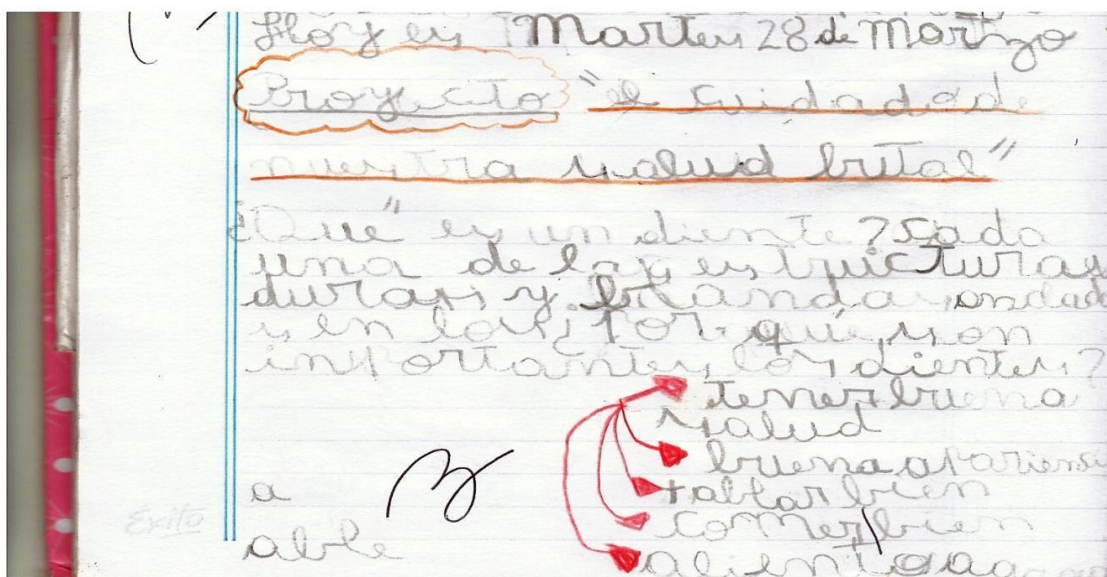 Hoy es Martes 28 de Marzo
Proyecto "el cuidado de
nuestra salud butal"
¿Que" es un diente? cada
una de las estructuras
duras y blandas, andada
s en las ¿Por qué son
importantes los dientes?
tener buena
salud
buena aparienci
a
hablar bien
comer bien
able
alient
Éxito